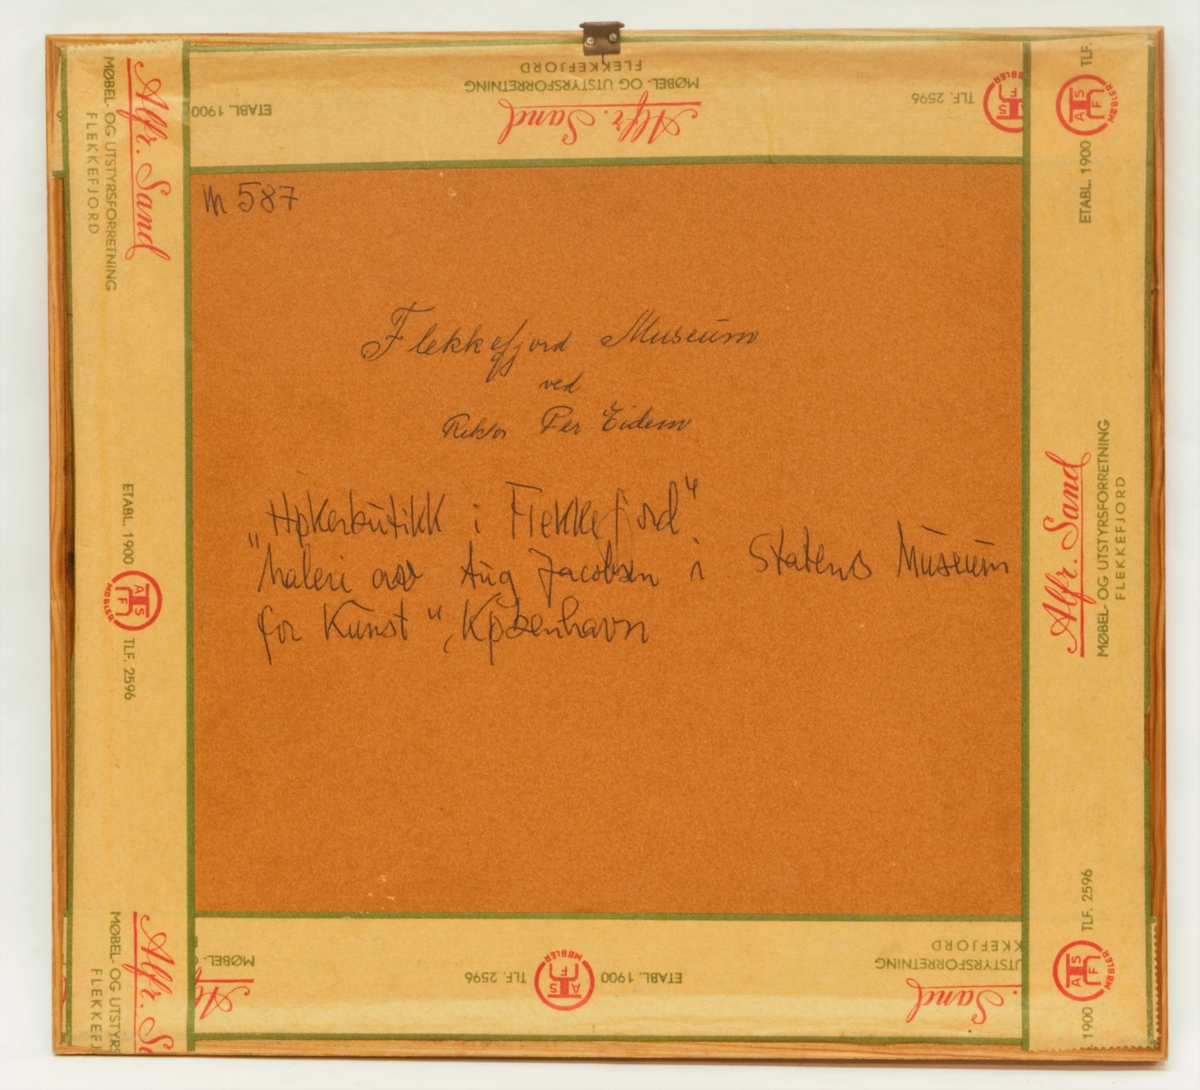 MØBEL- OG UTSTYRSFORRETNING
FLEKKEFJORD
Alfr. Sand
ETABL. 1900
TLF. 2596
ASF
MØBLER
Alfr. Sand
MØBEL- OG UTSTYRSFORRETNING
FLEKKEFJORD
ETABL. 1900
ASF
MØBLER
TLF. 2596
Alfr. S
MØBEL- OG UTSTYRS
FLEKKEFJ
m 587
Flekkefjord Museum
ved
Rektor Per Eidem
"Høkerbutikk i Flekkefjord"
"Maleri av Aug Jacobsen i Statens Museum
for Kunst", København
TLF.
ASF
MØBLER
ETABL. 1900
Alfr. Sand
MØBEL- OG UTSTYRSFORRETNING
FLEKKEFJORD
TLF. 2596
ASF
MØBLER
1900
MØBEL-
TLF. 2596
ASF
MØBLER
ETABL. 1900
KKEFJORD
UTSTYRSFORRETNING
Sand